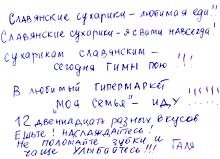 Славянские сухарики – любимая еда!!
Славянские сухарики – я с вами навсегда!
Сухарикам славянским –
сегодня гимн пою !!!
В любимый гипермаркет
"Моя семья" – иду !!!!!!
12 двеннадцать разных вкусов
Ешьте! Наслаждайтесь!
Не поломайте зубки и
чаще улыбайтесь!!! Галя